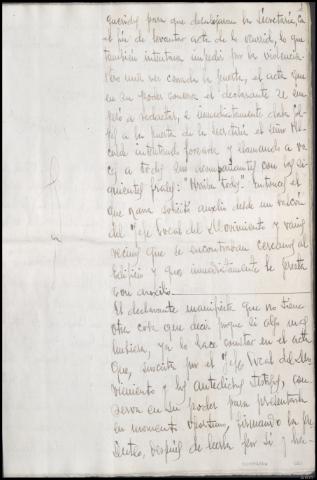 queridos para que desalojaran la Secretaría, a
el fin de levantar acta de lo ocurrido, lo que
también intentara impedir por la violencia
una vez cerrada la puerta, el acta que
en su poder conserva el declarante se em-
pezó a redactar, e inmediatamente daba gol-
pes a la puerta de la Secretaría el señor Al-
calde intentando forzarla y llamando a vo-
ces a todos sus acompañantes con las si-
guientes frases: "Arriba todos". Entonces el
que narra solicitó auxilio desde un balcón
del "Jefe Local del Movimiento y varios
vecinos que se encontraban cercanos al
Edificio y que inmediatamente le presta-
ron auxilio.
El declarante manifiesta que no tiene
otra cosa que decir porque si algo más
hubiera, ya lo hace constar en el acta
que, suscrita por el "Jefe Local del Mo-
vimiento y los antedichos testigos, con-
serva en su poder para presentarla
en momento oportuno, firmando la pre-
sente, después de leerla por sí y ha-